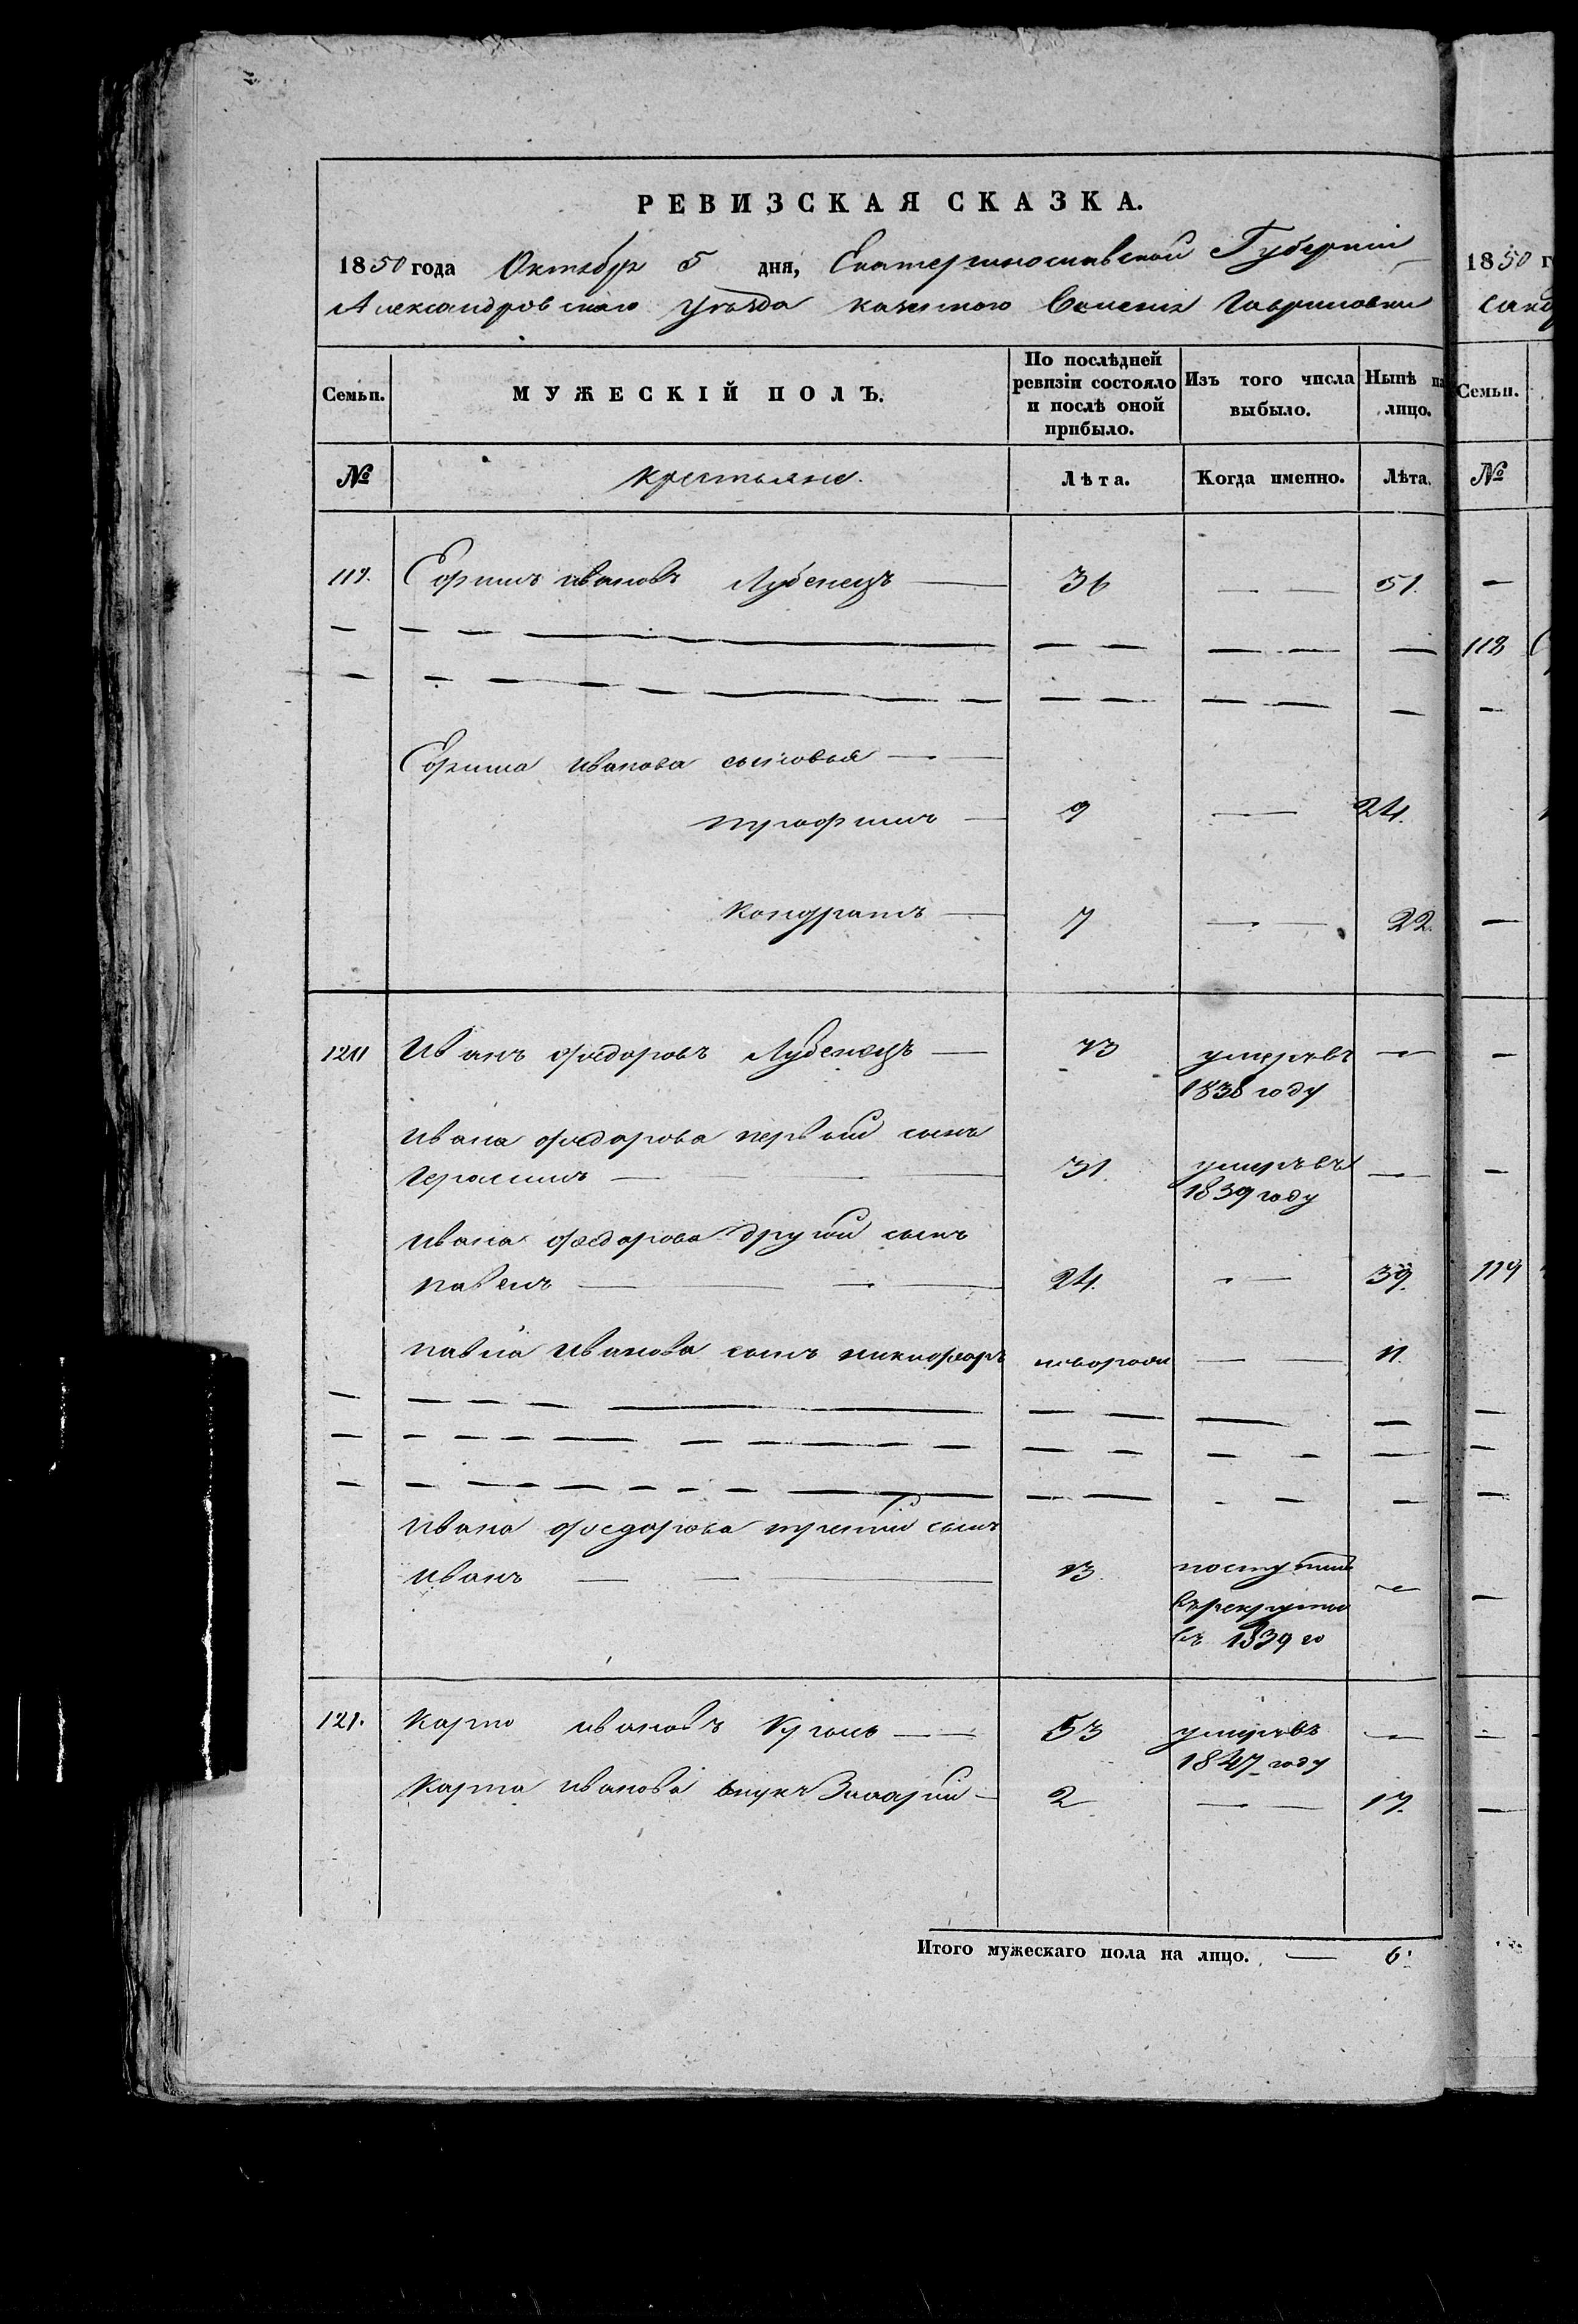 РЕВИЗСКАЯ СКАЗКА.
1850 года Октября 5 дня, Екатеринославской Губерніи
Александровскаго уѣзда казенного Селенія Гавриловки
Семьи. МУЖЕСКІЙ ПОЛЪ. По послѣдней ревизіи состояло и послѣ оной прибыло. Изъ того числа выбыло. Нынѣ на лицо.
№ крестьяне. Лѣта. Когда именно. Лѣта.
119. Ефимъ ивановъ Лубенецъ 36 51.
Ефима иванова сыновья
трофимъ 9 24.
Кондратъ 7 22.
120 Иванъ федоровъ Лубенецъ 73 умеръ въ
1838 году
ивана федорова первый сынъ
Герасимъ 31. умеръ въ
1839 году
ивана федорова другой сынъ
павелъ 24. 39.
павла иванова сынъ никифоръ новорож 11.
ивана федорова третій сынъ
иванъ 13. поступилъ
въ рекруты
въ 1839 го
121. Карпъ ивановъ 53 умеръ въ
1847 году
Карпа иванова внукъ Захарій 2 17.
Итого мужескаго пола на лицо. 6.
1850 г
Семьи.
№
118
119